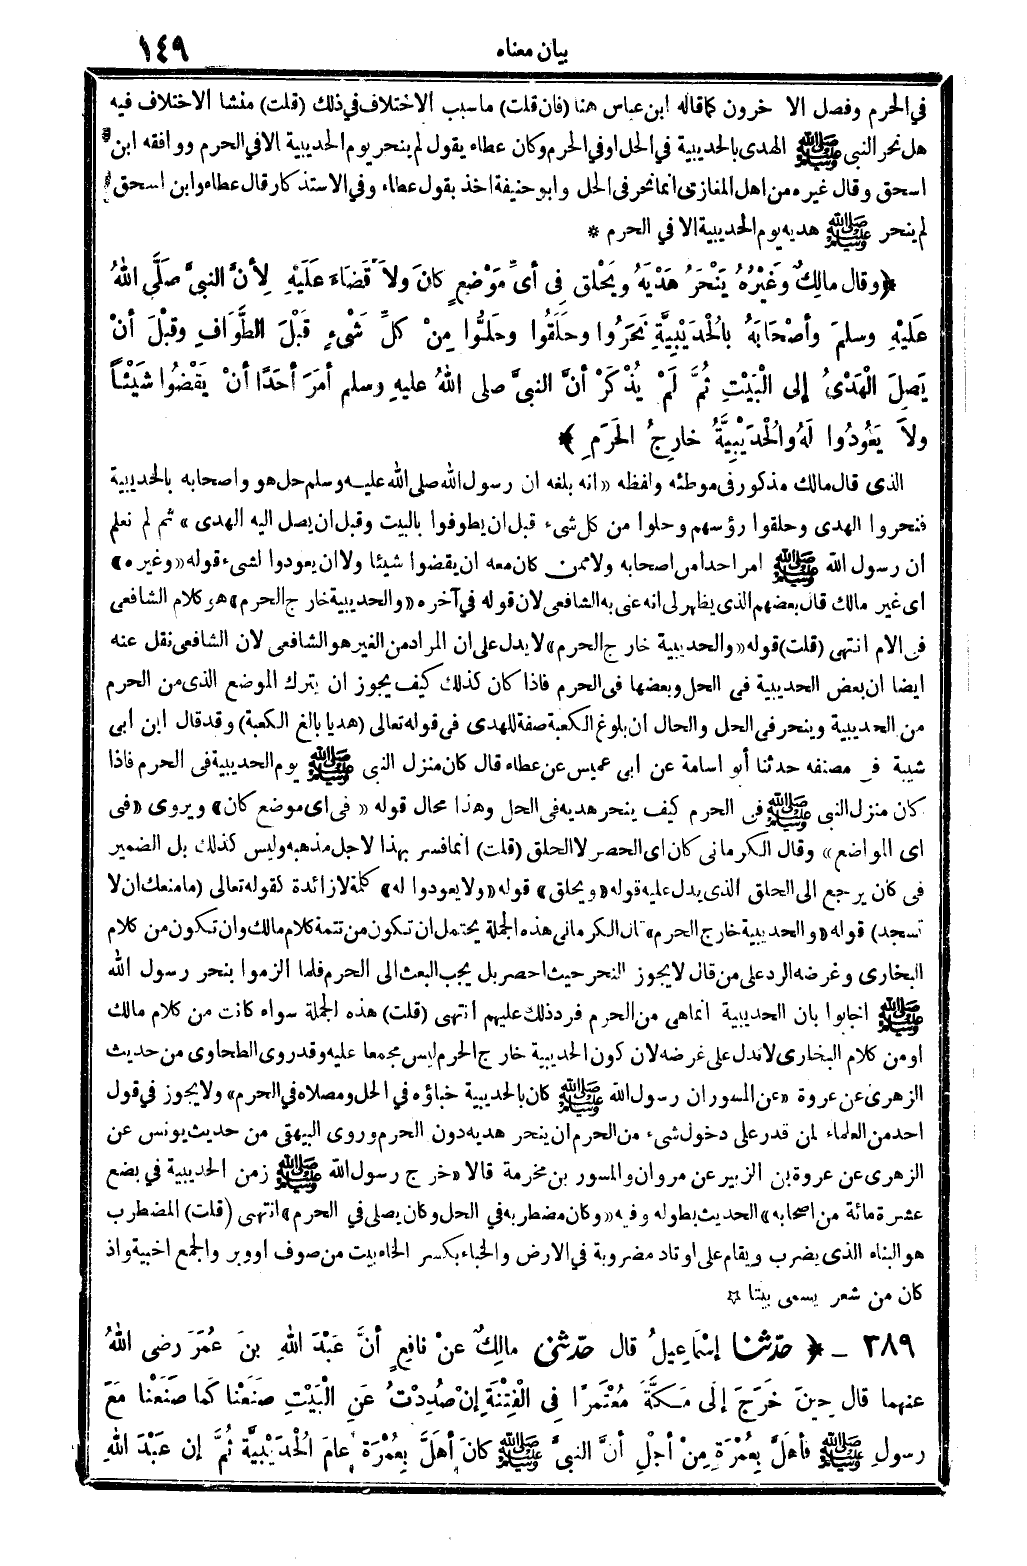 بيان معناه ١٤٩
في الحرم وفصل الآخرون كما قاله ابن عباس هنا (فان قلت) ما سبب الاختلاف في ذلك (قلت) منشأ الاختلاف فيه
هل نحر النبي ﷺ الهدى بالحديبية في الحل او في الحرم وكان عطاء يقول لم ينحر يوم الحديبية الا في الحرم ووافقه ابن
اسحق وقال غيره من اهل المغازى انما نحر فى الحل وابو حنيفة اخذ بقول عطاء وفي الاستذكار قال عطاء وابن اسحق
لم ينحر ﷺ هديه يوم الحديبية الا في الحرم *
﴿وقال مالِكٌ وغَيْرُهُ يَنْحَرُ هَدْيَهُ ويَحْلق فِى أىِّ مَوْضِعٍ كانَ ولاَ قَضَاءَ عَلَيْهِ لِأنَّ النبىَّ صَلَّى اللهُ
عَلَيْهِ وسلمَ وأصْحَابَهُ بالْحُدَيْبِيَّةِ نَحَرُوا وحَلَقُوا وحَلُّوا مِنْ كلِّ شَىْءٍ قَبْلَ الطَّوَافِ وقبْلَ أنْ
يَصِلَ الْهَدْىُ إلى الْبَيْتِ ثُمَّ لَمْ يُذْكَرْ أنَّ النبىَّ صلى اللهُ عليهِ وسلم أمَرَ أحَدًا أنْ يَقْضُوا شَيْئاً
ولاَ يَعُودُوا لَهُ والْحُدَيْبِيَّةُ خارِجُ الحَرَمِ ﴾
الذى قال مالك مذكور فى موطئه ولفظه «انه بلغه ان رسول الله صلى الله عليه وسلم حل هو واصحابه بالحديبية
فنحروا الهدى وحلقوا رؤسهم وحلوا من كل شىء قبل ان يطوفوا بالبيت وقبل ان يصل اليه الهدى» ثم لم نعلم
ان رسول الله ﷺ امر احدا من اصحابه ولا ممن كان معه ان يقضوا شيئا ولا ان يعودوا لشىء قوله «وغيره»
اى غير مالك قال بعضهم الذى يظهر لى انه عنى به الشافعى لان قوله في آخره «والحديبية خارج الحرم» هو كلام الشافعى
فى الام انتهى (قلت) قوله «والحديبية خارج الحرم» لا يدل على ان المراد من الغير هو الشافعى لان الشافعى نقل عنه
ايضا ان بعض الحديبية فى الحل وبعضها فى الحرم فاذا كان كذلك كيف يجوز ان يترك الموضع الذى من الحرم
من الحديبية وينحر فى الحل والحال ان بلوغ الكعبة صفة للهدى فى قوله تعالى (هديا بالغ الكعبة) وقد قال ابن أبى
شيبة فى مصنفه حدثنا أبو اسامة عن ابى عميس عن عطاء قال كان منزل النبى ﷺ يوم الحديبية فى الحرم فاذا
كان منزل النبى ﷺ فى الحرم كيف ينحر هديه فى الحل وهذا محال قوله «فى اى موضع كان» ويروى «فى
اى المواضع» وقال الكرمانى كان اى الحصر لا الحلق (قلت) انما فسر بهذا لاجل مذهبه وليس كذلك بل الضمير
فى كان يرجع الى الحلق الذى يدل عليه قوله «ويحلق» قوله «ولا يعودوا له» كلمة لا زائدة لقوله تعالى (ما منعك ان لا
تسجد) قوله «والحديبية خارج الحرم» قال الكرمانى هذه الجملة يحتمل ان تكون من تتمة كلام مالك وان تكون من كلام
البخارى وغرضه الرد على من قال لا يجوز النحر حيث احصر بل يجب البعث الى الحرم فلما الزموا بنحر رسول الله
ﷺ اجابوا بان الحديبية انما هى من الحرم فرد ذلك عليهم انتهى (قلت) هذه الجملة سواء كانت من كلام مالك
او من كلام البخارى لا تدل على غرضه لان كون الحديبية خارج الحرم ليس مجمعا عليه وقد روى الطحاوى من حديث
الزهرى عن عروة «عن المسور ان رسول الله ﷺ كان بالحديبية خباؤه في الحل ومصلاه في الحرم» ولا يجوز في قول
احد من العلماء لمن قدر على دخول شىء من الحرم ان ينحر هديه دون الحرم وروى البيهقى من حديث يونس عن
الزهرى عن عروة بن الزبير عن مروان والمسور بن مخرمة قالا «خرج رسول الله ﷺ زمن الحديبية في بضع
عشرة مائة من اصحابه» الحديث بطوله وفيه «وكان مضطربه في الحل وكان يصلى في الحرم» انتهى (قلت) المضطرب
هو البناء الذى يضرب ويقام على اوتاد مضروبة في الارض والخباء بكسر الخاء بيت من صوف او وبر والجمع اخبية واذ
كان من شعر يسمى بيتا ☆
٣٨٩ ـ ﴿ حدّثنا إسْمَاعِيلُ قال حدّثنى مالِكٌ عنْ نافِعٍ أنَّ عَبْدَ اللهِ بنَ عُمَرَ رضى اللهُ
عنهما قال حِينَ خَرَجَ إلَى مَكَّةَ مُعْتَمِرًا فِى الْفِتْنَةِ إنْ صُدِدْتُ عَنِ الْبَيْتِ صَنَعْنا كَما صَنَعْنا مَعَ
رسولِ ﷺ فأهَلَّ بِعُمْرَةٍ مِنْ أجْلِ أنَّ النبىَّ ﷺ كانَ أهَلَّ بِعُمْرَةٍ عامَ الْحُدَيْبِيَّةِ ثُمَّ إن عَبْدَ اللهِ